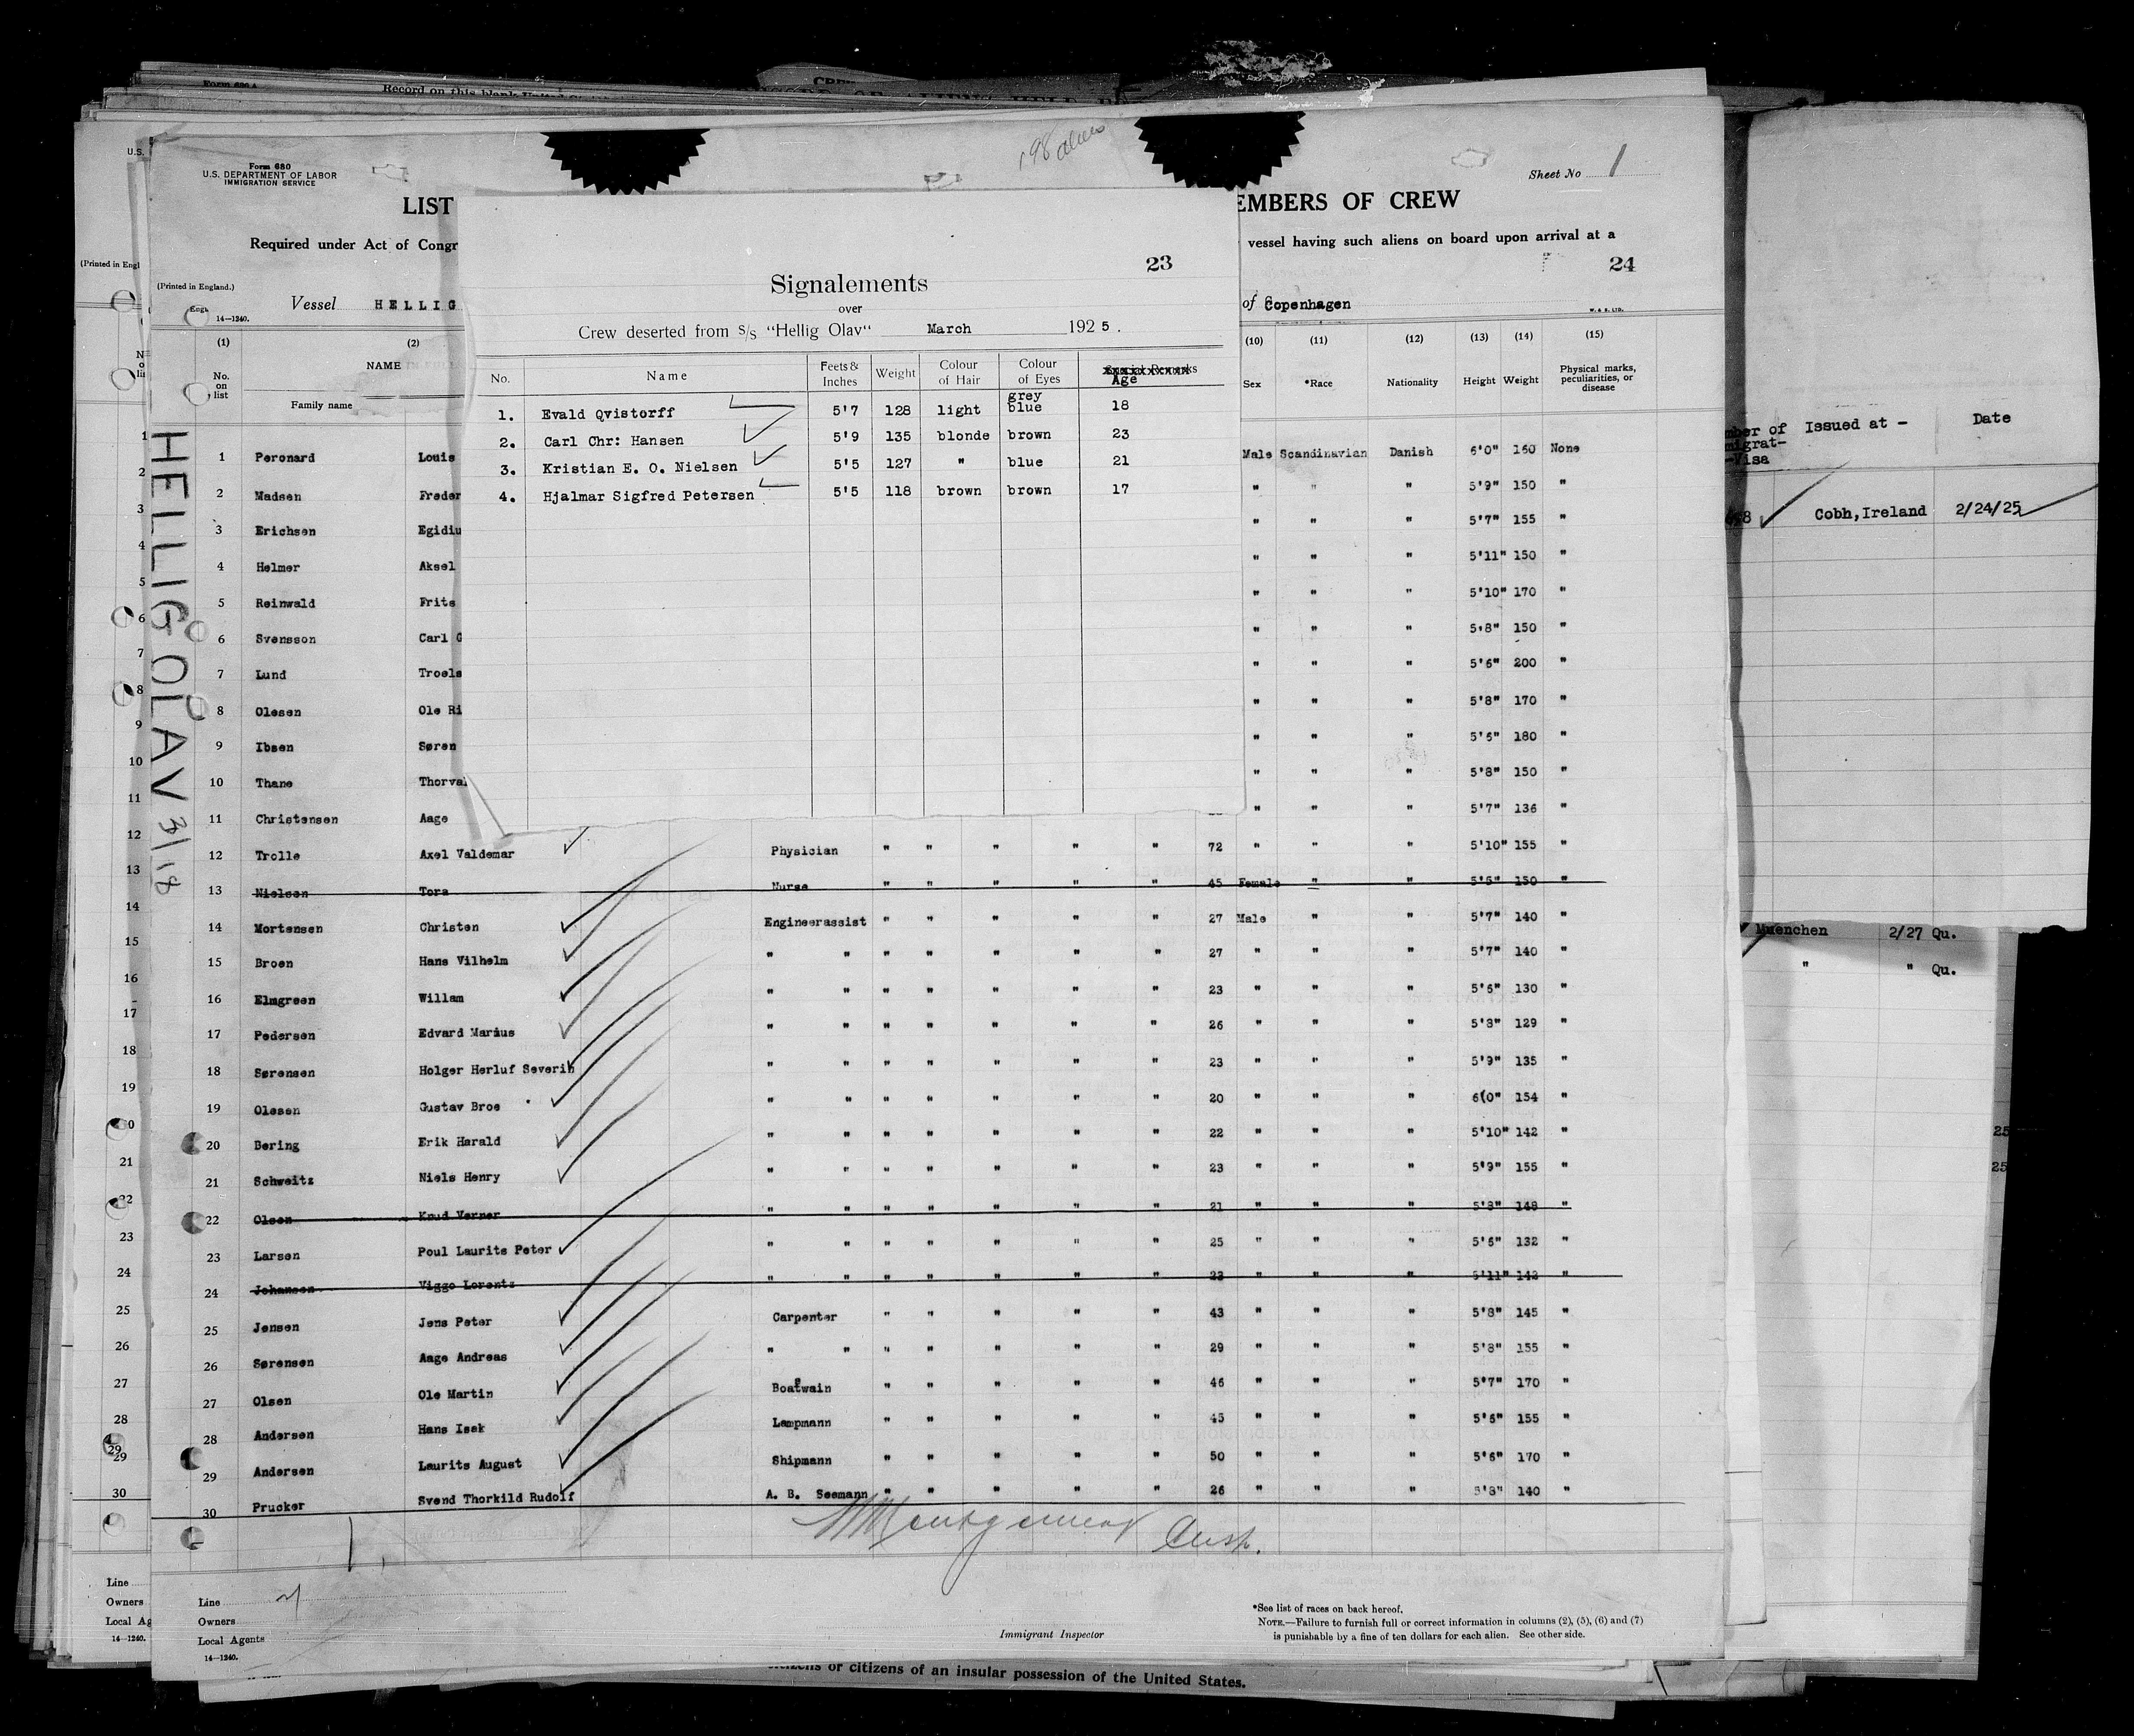 198 aliens
Form 680
U.S. DEPARTMENT OF LABOR
IMMIGRATION SERVICE
Sheet No 1
LIST
EMBERS OF CREW
Required under Act of Congr
vessel having such aliens on board upon arrival at a
24
(Printed in England.)
14—1240.
Vessel HELLIG
of Copenhagen
W. & S. LTD.
23
Signalements
over
Crew deserted from S/S "Hellig Olav" March 1925.
No. Name Feets & Inches Weight Colour of Hair Colour of Eyes Age
1. Evald Qvistorff 5'7 128 light grey blue 18
2. Carl Chr: Hansen 5'9 135 blonde brown 23
3. Kristian E. O. Nielsen 5'5 127 " blue 21
4. Hjalmar Sigfred Petersen 5'5 118 brown brown 17
(1) (2) (10) (11) (12) (13) (14) (15)
No. on list NAME Sex *Race Nationality Height Weight Physical marks, peculiarities, or disease
Family name
HELLIG OLAV 3/18
1 Peronard Louis Male Scandinavian Danish 6'0" 160 None
2 Madsen Freder " " " 5'9" 150 "
3 Erichsen Egidiu " " " 5'7" 155 "
4 Helmer Aksel " " " 5'11" 150 "
5 Reinwald Frits " " " 5'10" 170 "
6 Svensson Carl G " " " 5'8" 150 "
7 Lund Troels " " " 5'6" 200 "
8 Olesen Ole Ri " " " 5'8" 170 "
9 Ibsen Søren " " " 5'6" 180 "
10 Thane Thorval " " " 5'8" 150 "
11 Christensen Aage " " " 5'7" 136 "
12 Trolle Axel Valdemar Physician " " " " " 72 " " " 5'10" 155 "
13 Nielsen Tora Nurse " " " " " 45 Female " " 5'5" 150 "
14 Mortensen Christen Engineerassist " " " " " 27 Male " " 5'7" 140 "
15 Broen Hans Vilhelm " " " " " " " 27 " " " 5'7" 140 "
16 Elmgreen Willam " " " " " " " 23 " " " 5'6" 130 "
17 Pedersen Edvard Marius " " " " " " " 26 " " " 5'8" 129 "
18 Sørensen Holger Herluf Severin " " " " " " " 23 " " " 5'9" 135 "
19 Olesen Gustav Broe " " " " " " " 20 " " " 6(0" 154 "
20 Bering Erik Harald " " " " " " " 22 " " " 5'10" 142 "
21 Schweitz Niels Henry " " " " " " " 23 " " " 5'9" 155 "
22 Olsen Knud Verner " " " " " " " 21 " " " 5'8" 148 "
23 Larsen Poul Laurits Peter " " " " " " " 25 " " " 5'6" 132 "
24 Johansen Viggo Lorentz " " " " " " " 23 " " " 5'11" 142 "
25 Jensen Jens Peter Carpenter " " " " " 43 " " " 5'8" 145 "
26 Sørensen Aage Andreas " " " " " " " 29 " " " 5'8" 155 "
27 Olsen Ole Martin Boatswain " " " " " 46 " " " 5'7" 170 "
28 Andersen Hans Isak Lampmann " " " " " 45 " " " 5'6" 155 "
29 Andersen Laurits August Shipmann " " " " " 50 " " " 5'6" 170 "
30 Prucker Svend Thorkild Rudolf A. B. Seemann " " " " " 26 " " " 5'8" 140 "
Montgomery Insp.
Line
Owners
Local Agents
14—1240.
Immigrant Inspector
*See list of races on back hereof.
NOTE.—Failure to furnish full or correct information in columns (2), (5), (6) and (7)
is punishable by a fine of ten dollars for each alien. See other side.
or citizens of an insular possession of the United States.
Form 680 A
Record on this blank United
U.S.
(Printed in Engl
Line
Owners
Local Ag
14—1240.
Visa Issued at — Date
Cobh, Ireland 2/24/25
Muenchen 2/27 Qu.
" " Qu.
25
25